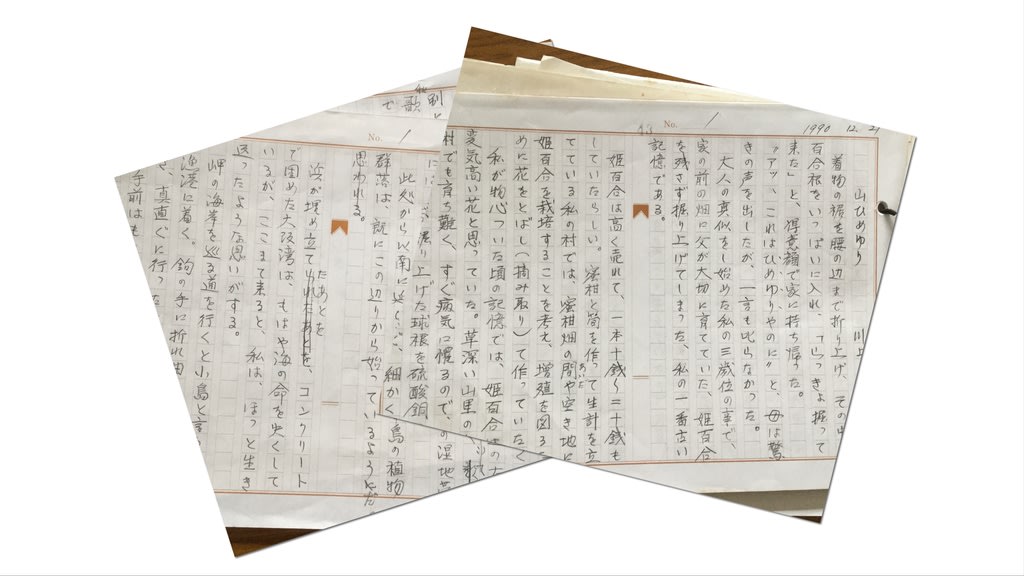 1990 12. 21
No. 1
山ひめゆり 川上
着物の裾を腰の辺まで折り上げ、その中
百合根をいっぱいに入れ、「いっきょ掘って
来た」と、得意顔で家に持ち帰った。
「アッ、これはひめゆりやのに」と、母は驚
きの声を出したが、一言も叱らなかった。
大人の真似をし始めた私の三歳位の事で、
家の前の畑に父が大切に育てていた、姫百合
を残さず掘り上げてしまった、私の一番古い
記憶である。
姫百合は高く売れて、一本十銭〜二十銭も
していたらしい。蜜柑と筍を作って生計を立
てている私の村では、蜜柑畑の間や空き地に
あいだ
姫百合を栽培することを考え、増殖を図る
めに花をとばし(摘み取り)て作っていたく
私が物心ついた頃の記憶では、姫百合は
変気高い花と思っていた。草深い山里の
村でも育ち難く、すぐ病気に懼るので
掘り上げた球根を硫酸銅
No. 1
此処から以南に
島の植物
群落は、既にこの辺りから始っているようだ。
思われる。
浜が埋め立て
たあとを
、コンクリート
で固めた大阪湾は、もはや海の命を失くして
いるが、ここまで来ると、私は、ほっと生き
返ったような思いがする。
岬の海岸を巡る道を行くと小島と言
漁港に着く。鈎の手に折れ曲
、真直ぐに行った
手前は